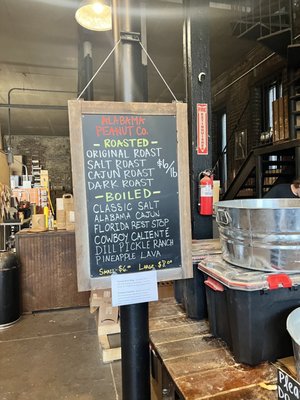 ALABAMA
PEANUT CO.
-ROASTED-
ORIGINAL ROAST
SALT ROAST
CAJUN ROAST
DARK ROAST
$6/lb
-BOILED-
CLASSIC SALT
ALABAMA CAJUN
FLORIDA REST STOP
COWBOY CALIENTE
DILL PICKLE RANCH
PINEAPPLE LAVA
SMALL $6 LARGE $8.00
Please